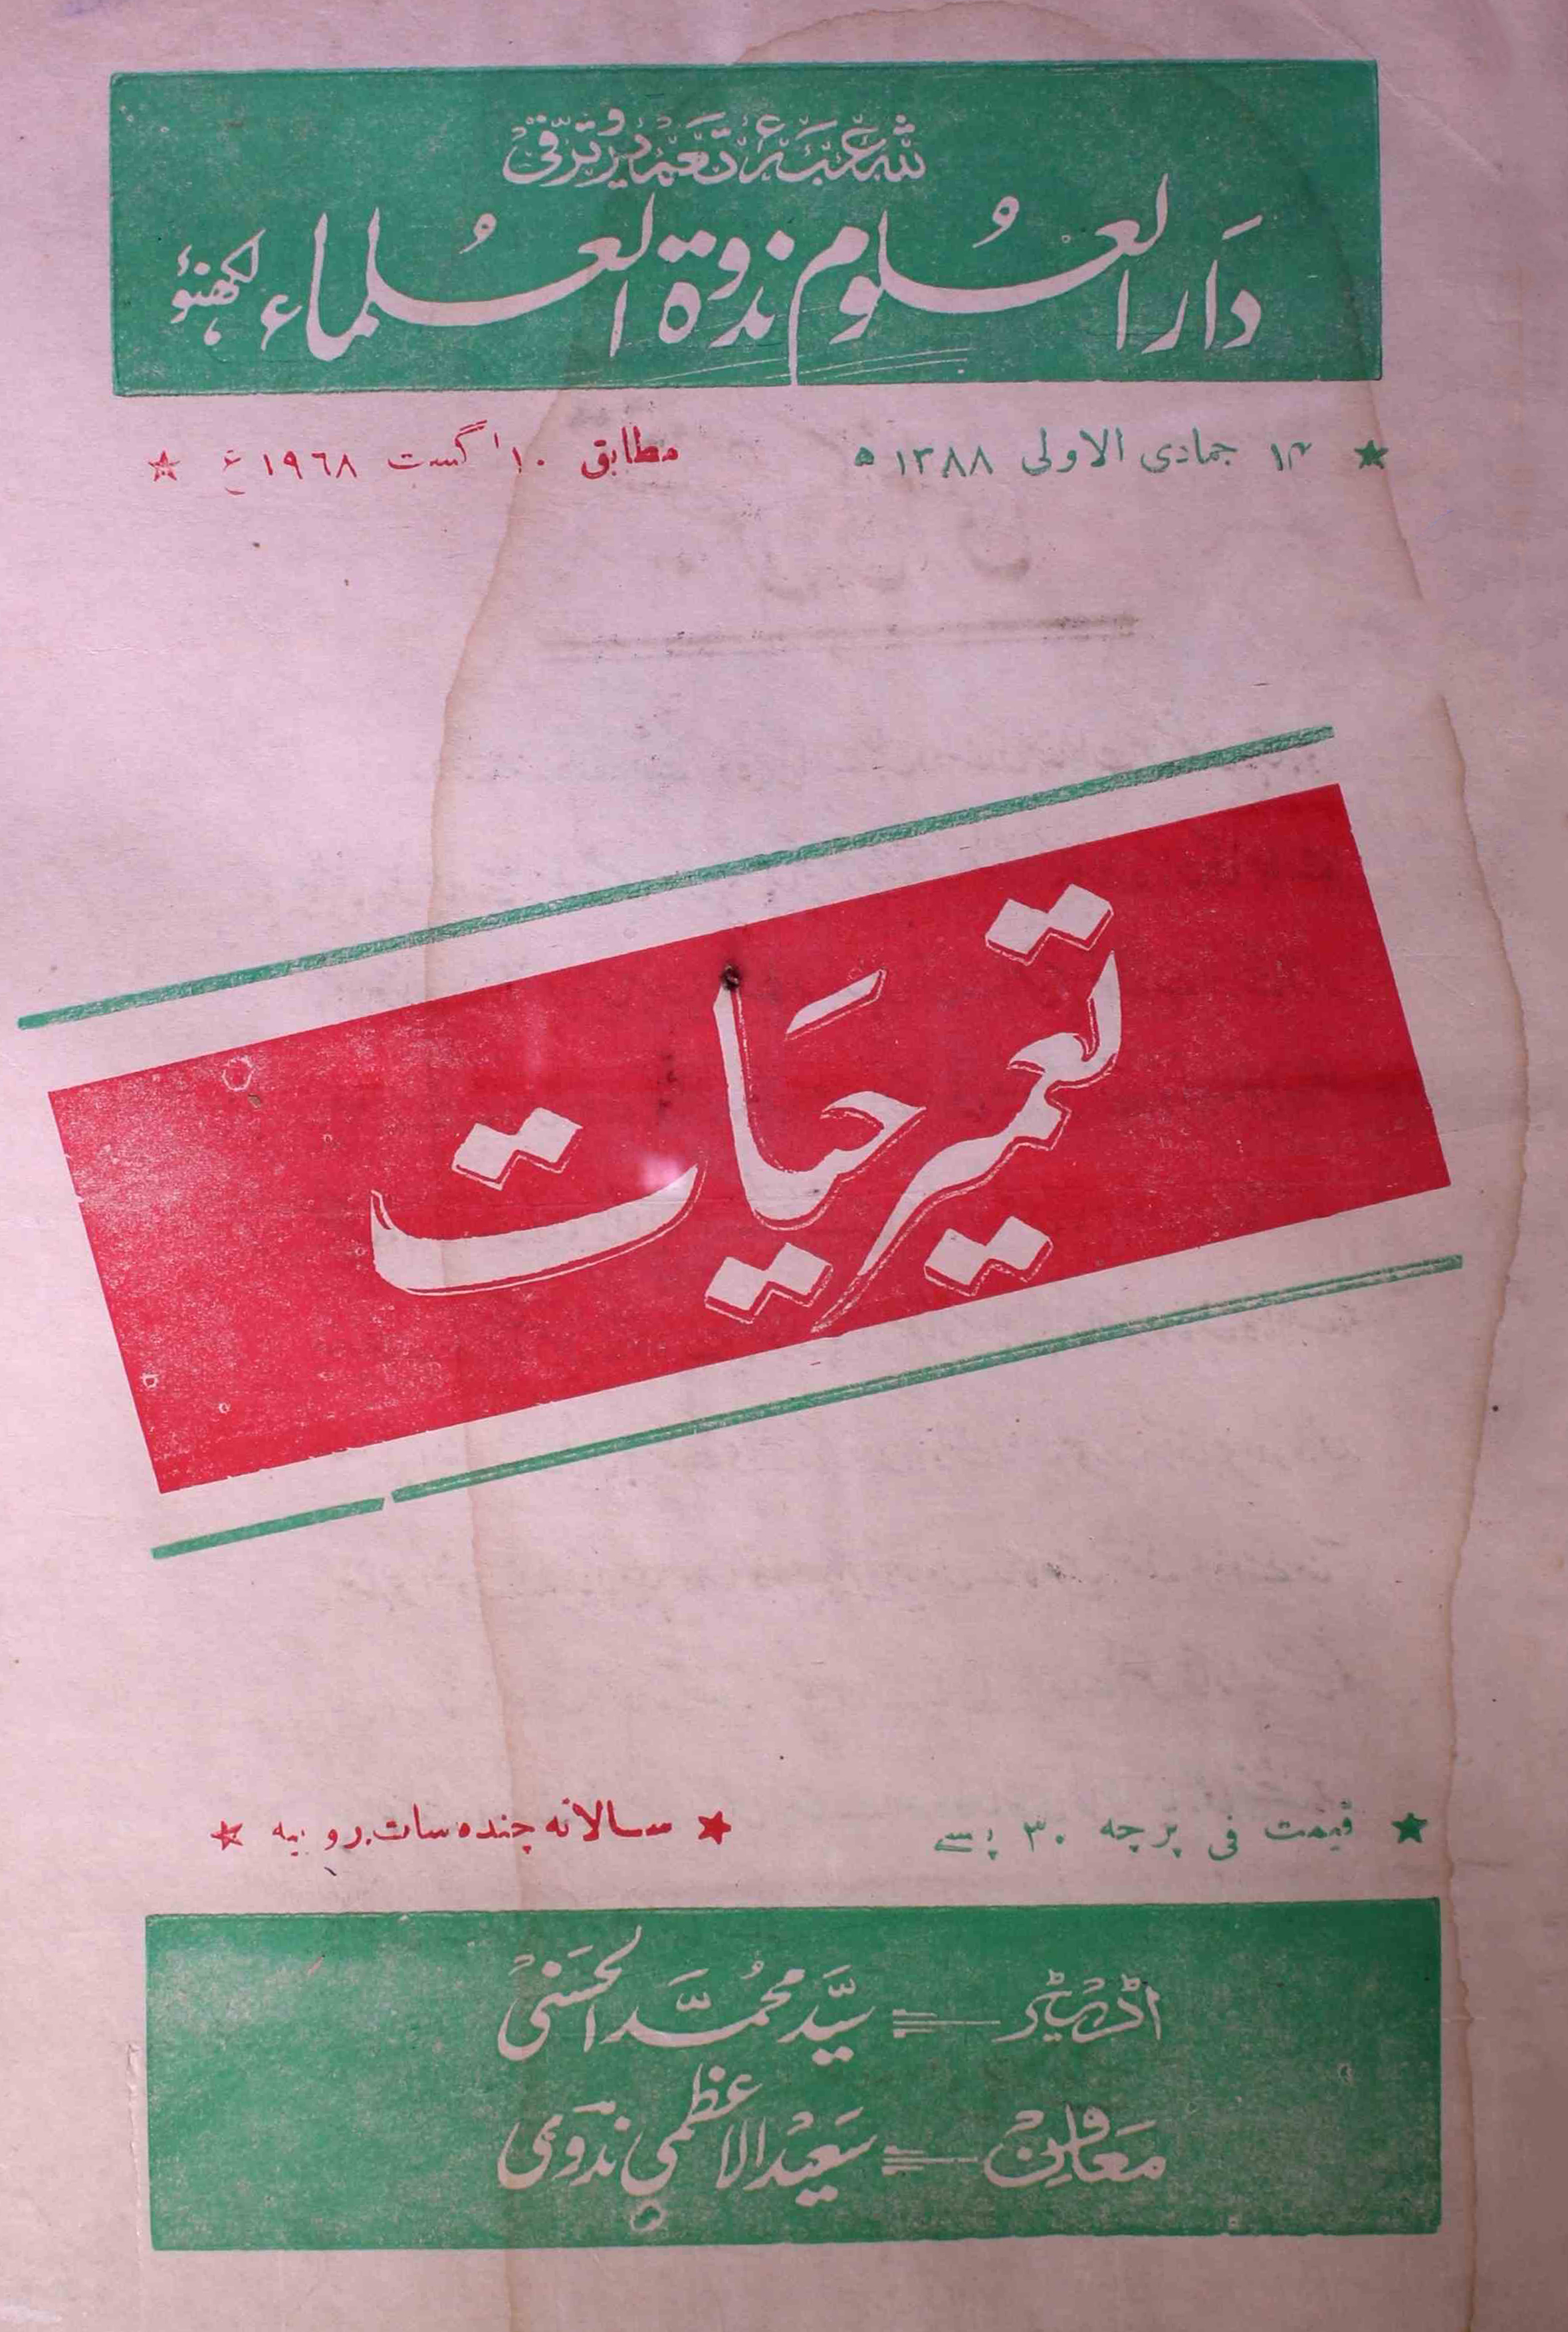 شعبۂ تعمیر و ترقی
دَار العُلوم ندوۃ العُلماء لکھنؤ
★ ۱۴ جمادی الاولی ۱۳۸۸ھ مطابق ۱۰ اگست ۱۹۶۸ع ★
تعمیر حیَات
★ قیمت فی پرچہ ۳۰ پسے ★ سالانہ چندہ سات روپیہ ★
اڈیٹر = سیّد محمّد الحسنی
معاون = سعید الاعظمی ندوی